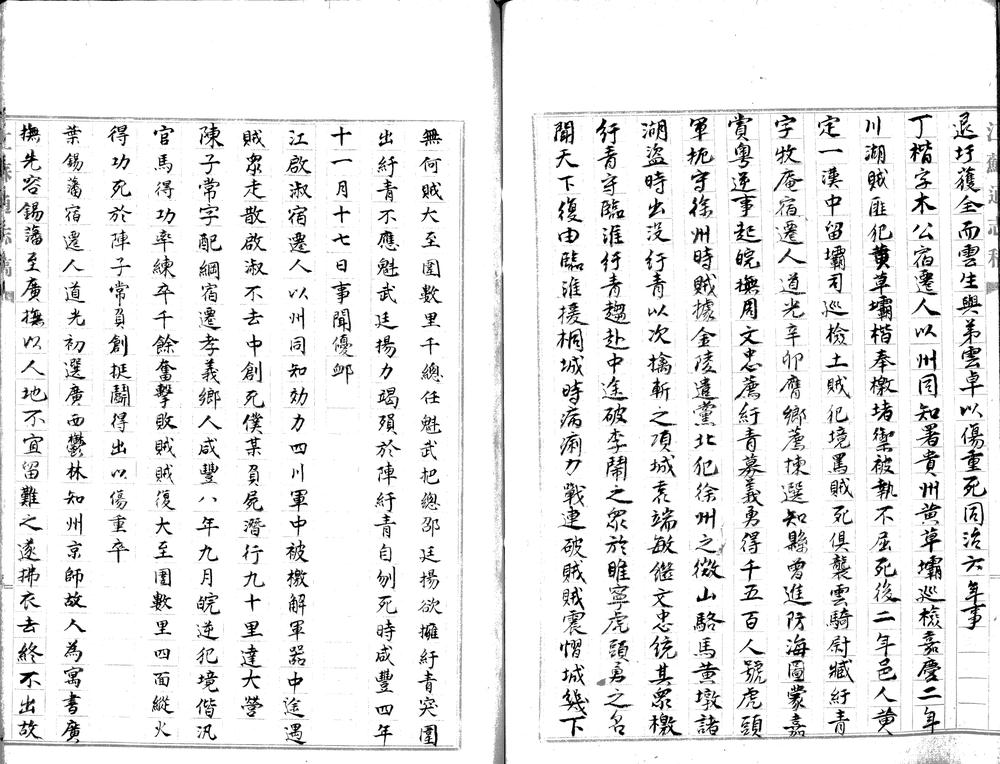 退圩獲全而雲生與弟雲卓以傷重死同治六年事
丁楷字木公宿遷人以州同知署貴州黃草壩巡檢嘉慶二年
川湖賊匪犯黃草壩楷奉檄堵禦被執不屈死後二年邑人黃
定一漢中留壩司巡檢土賊犯境罵賊死俱襲雲騎尉臧紆青
字牧庵宿遷人道光辛卯膺鄉薦揀選知縣曾進防海圖蒙嘉
賞粵逆事起皖撫周文忠薦紆青募義勇得千五百人號虎頭
軍扼守徐州時賊據金陵遣黨北犯徐州之微山駱馬黃墩諸
湖盜時出沒行青以次擒斬之項城袁端敏繼文忠統其眾檄
行青守臨淮行青趨赴中途破李鬧之眾於睢寧虎頭勇之名
聞天下復由臨淮援桐城時病痢力戰連破賊賊震慴城幾下
無何賊大至圍數里千總任魁武把總邵廷揚欲擁紆青突圍
出紆青不應魁武廷揚力竭殞於陣紆青自刎死時咸豐四年
十一月十七日事聞優卹
江啟淑宿遷人以州同知効力四川軍中被檄解軍器中途遇
賊眾走散啟淑不去中創死僕某負屍潛行九十里達大營
陳子常字配綱宿遷孝義鄉人咸豐八年九月皖逆犯境偕汛
官馬得功率練卒千餘奮擊敗賊賊復大至圍數里四面縱火
得功死於陣子常負創挺鬭得出以傷重卒
葉錫藩宿遷人道光初選廣西鬱林知州京師故人為寓書廣
撫先容錫藩至廣撫以人地不宜留難之遂拂衣去終不出故